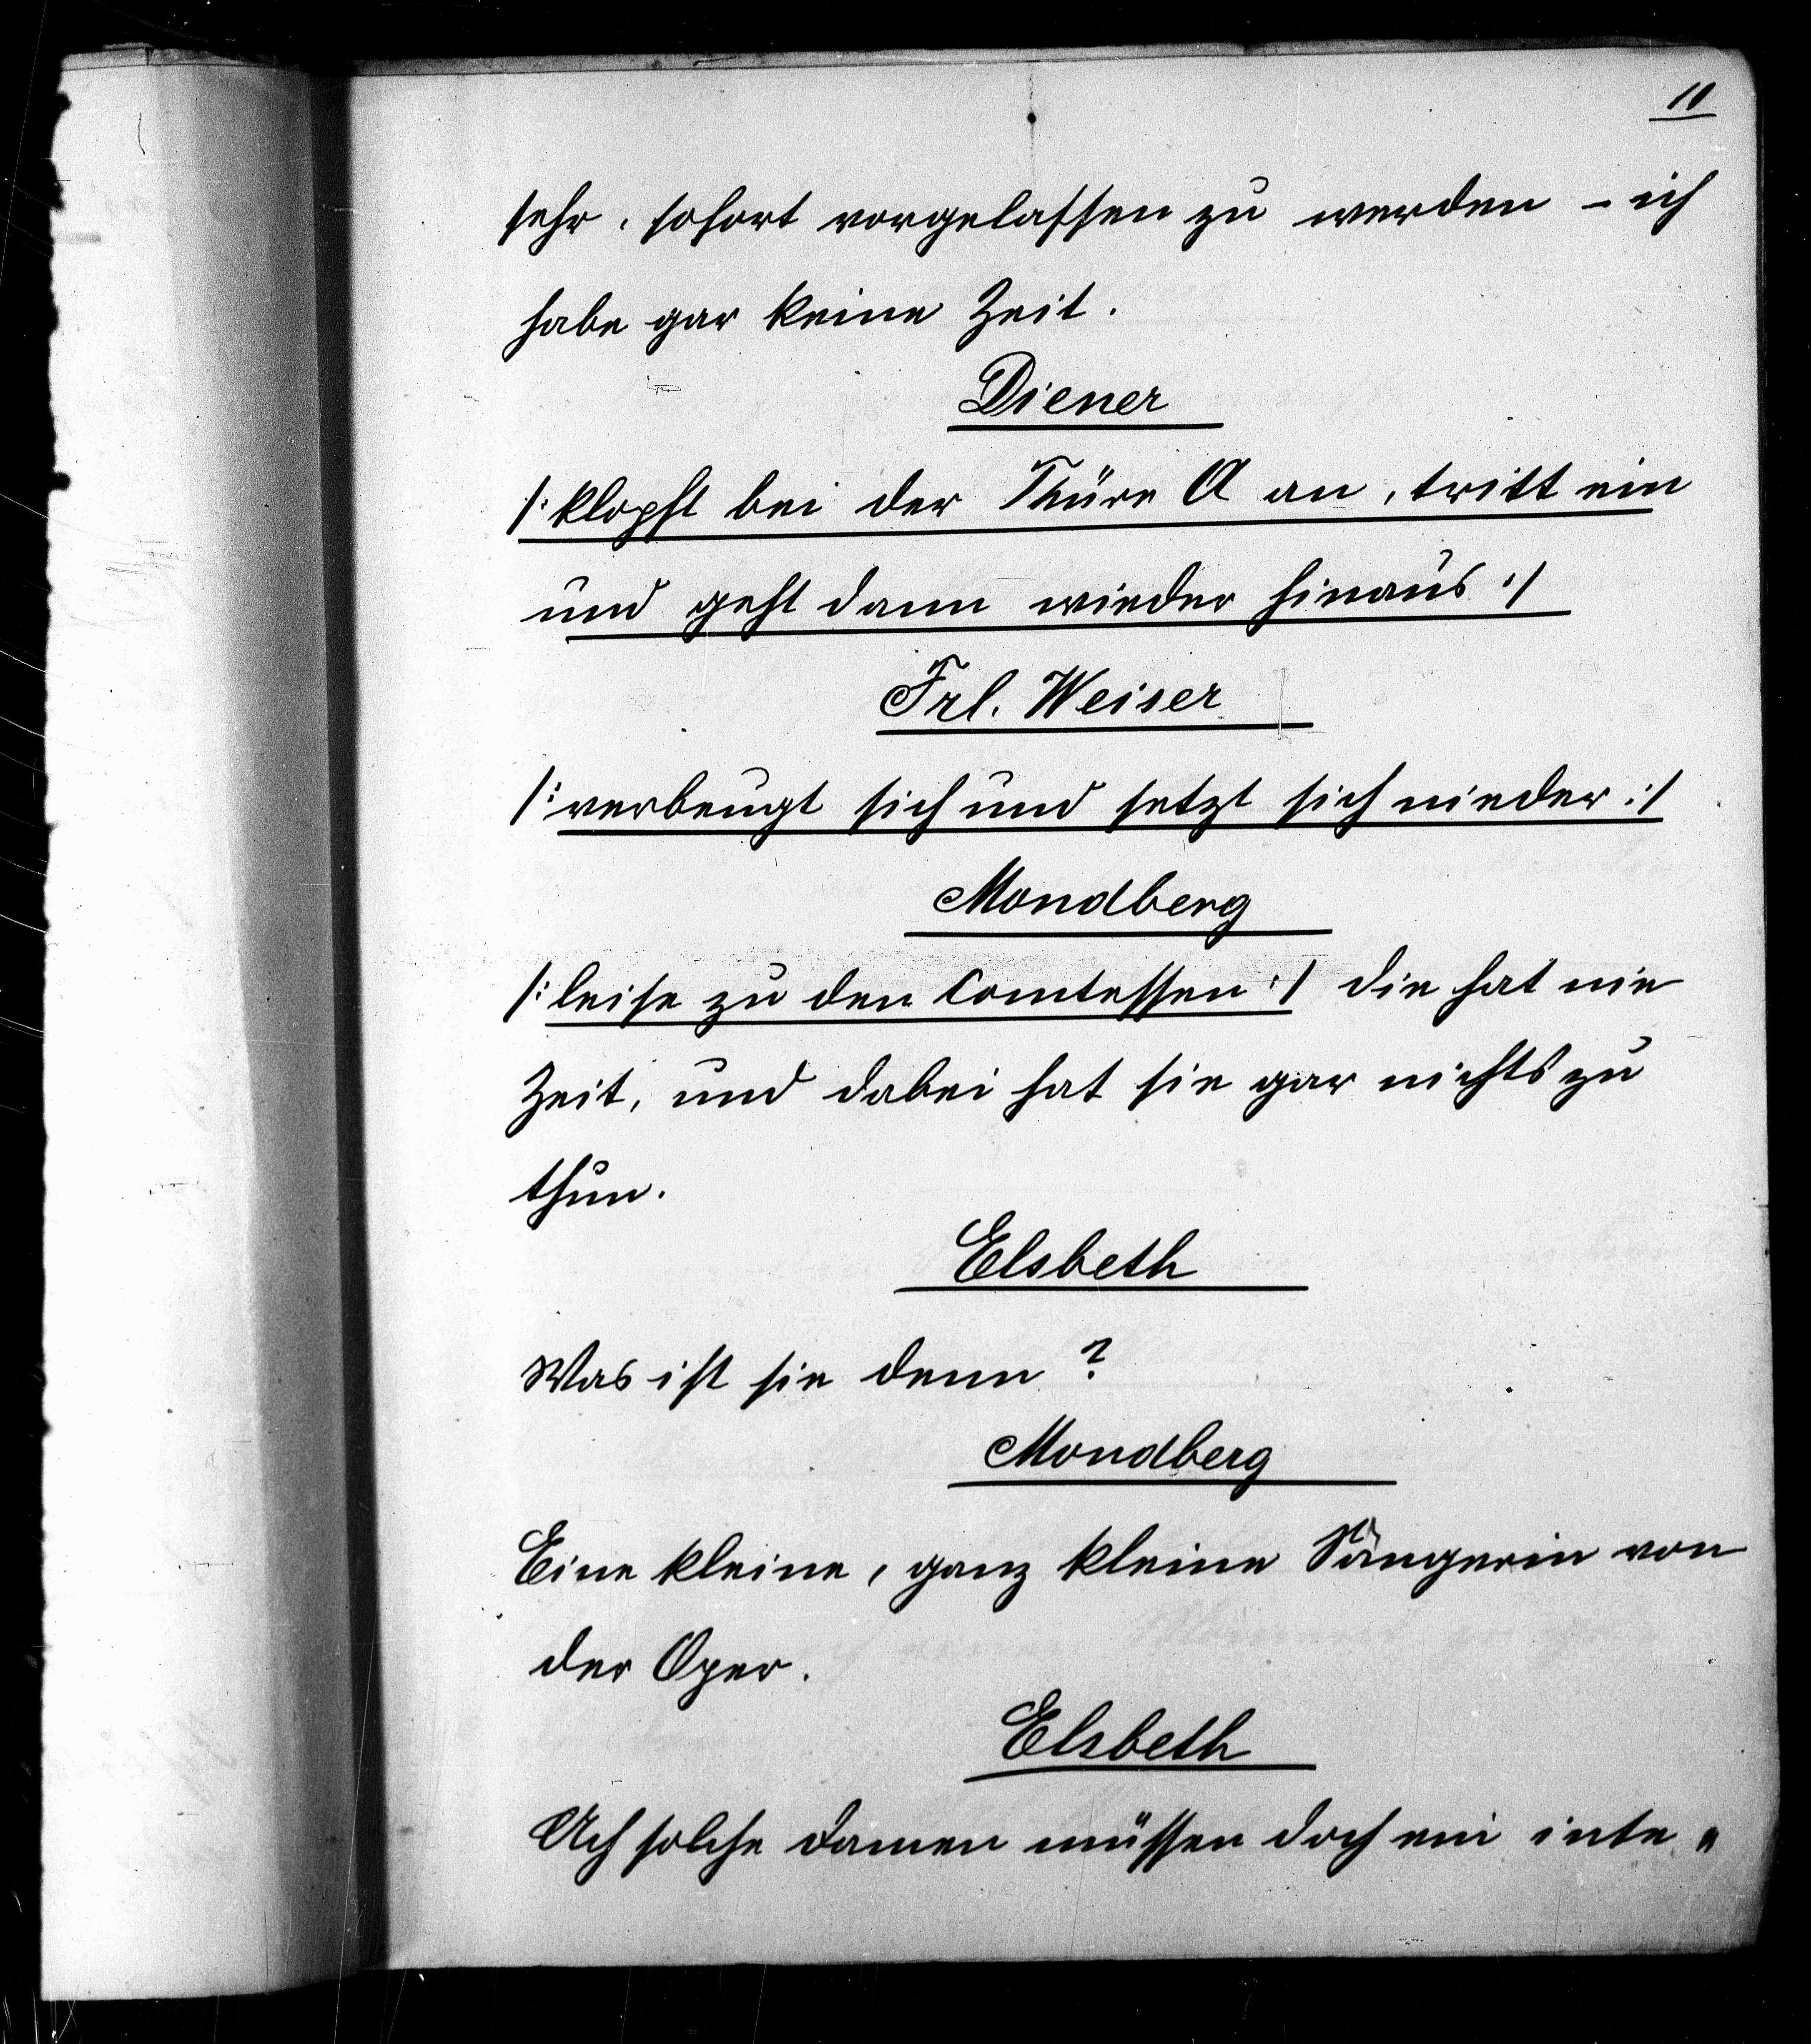 11
sehr, sofort vorgelassen zu werden – ich
habe gar keine Zeit.
Diener
/: klopft bei der Thüre A an, tritt ein
und geht dann wieder hinaus :/
Frl. Weiser
/: verbeugt sich und setzt sich nieder :/
Mondberg
/: leise zu den Comtessen :/ die hat nie
Zeit, und dabei hat sie gar nichts zu
thun.
Elsbeth
Was ist sie denn?
Mondberg
Eine kleine, ganz kleine Sängerin von
der Oper.
Elsbeth
Ach solche Damen müssen doch ein inte„